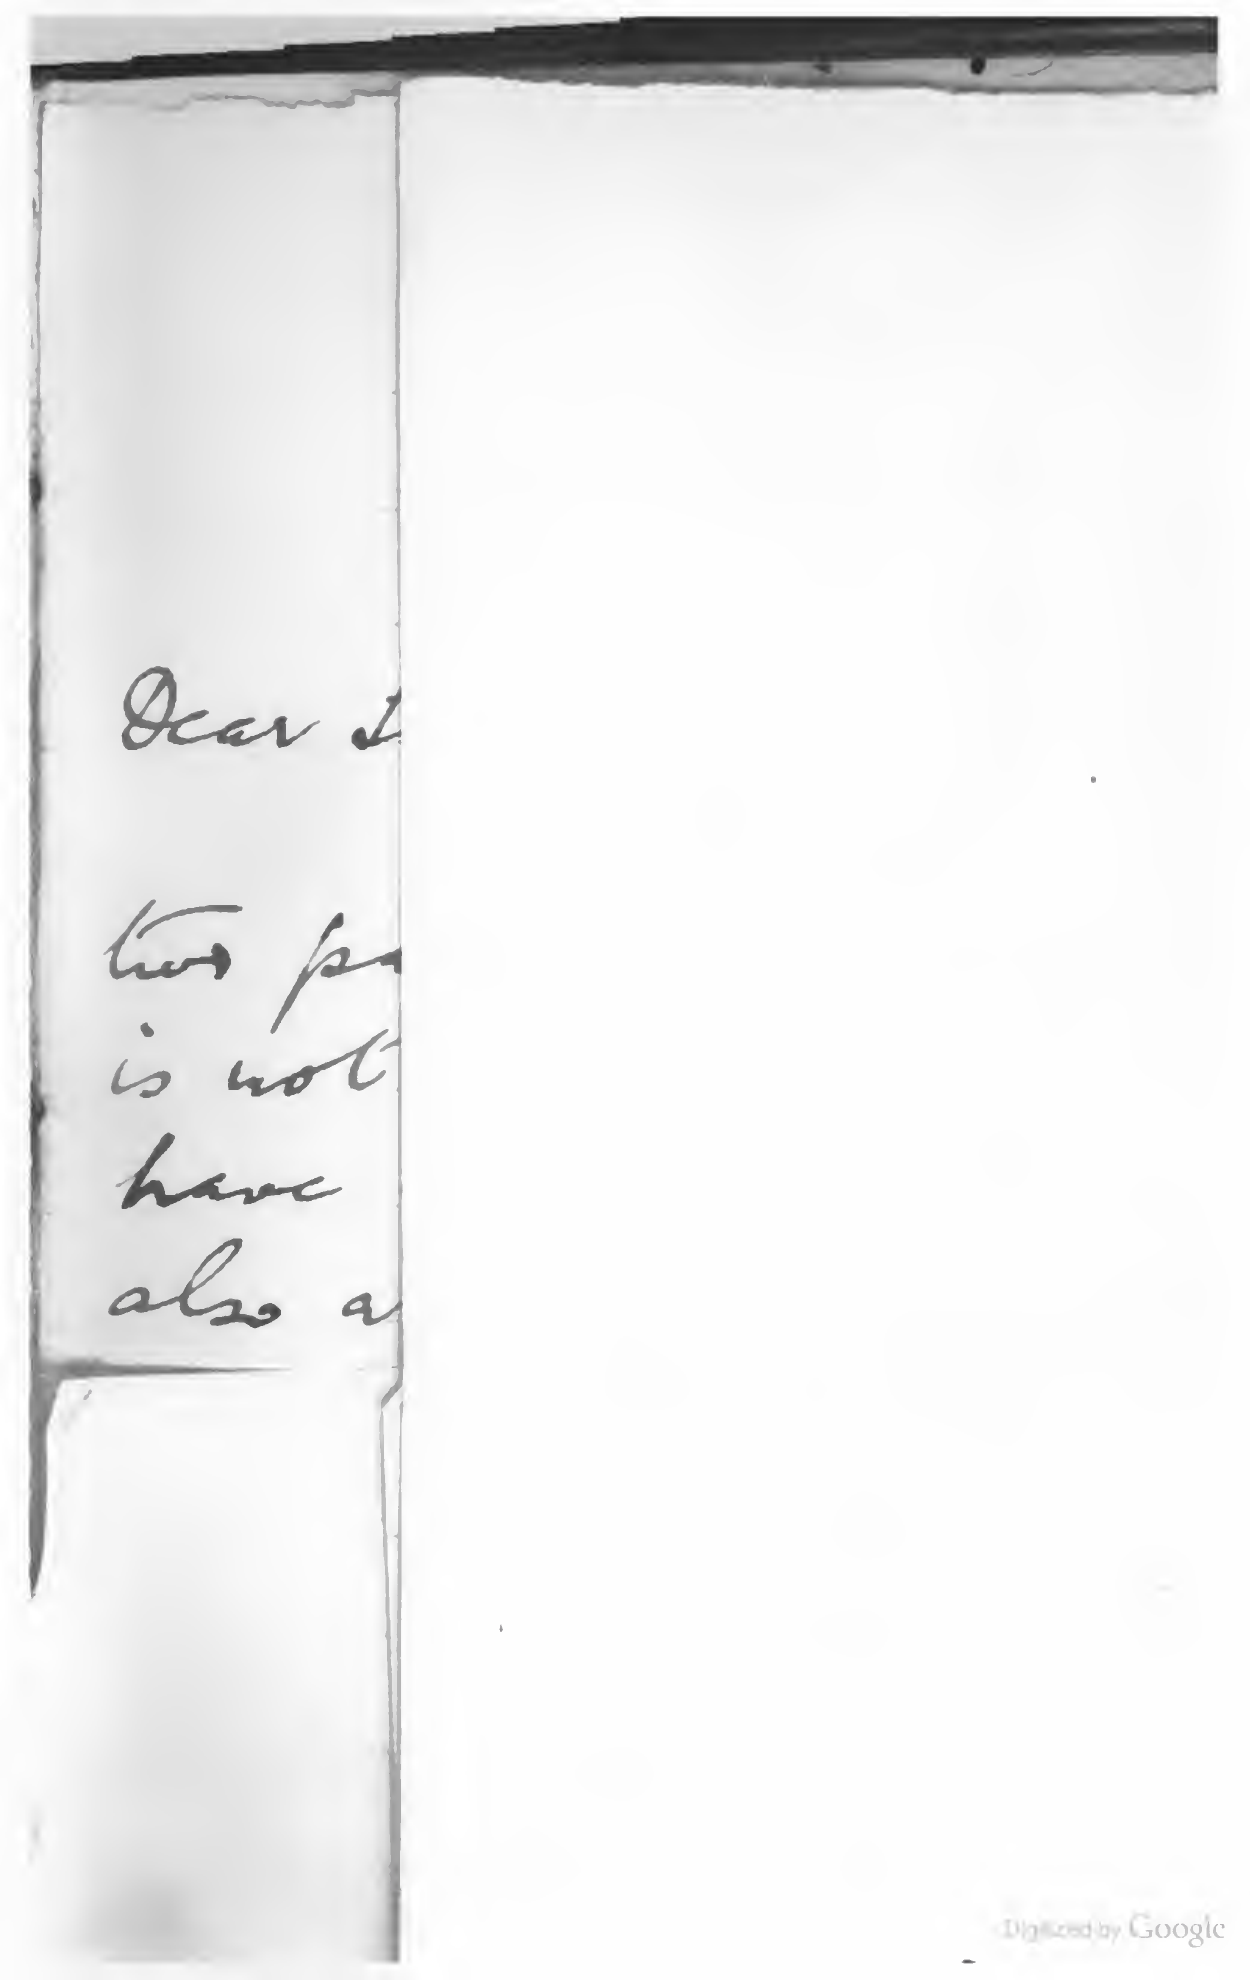 Dear
two
is not
have
also
Digitized by Google